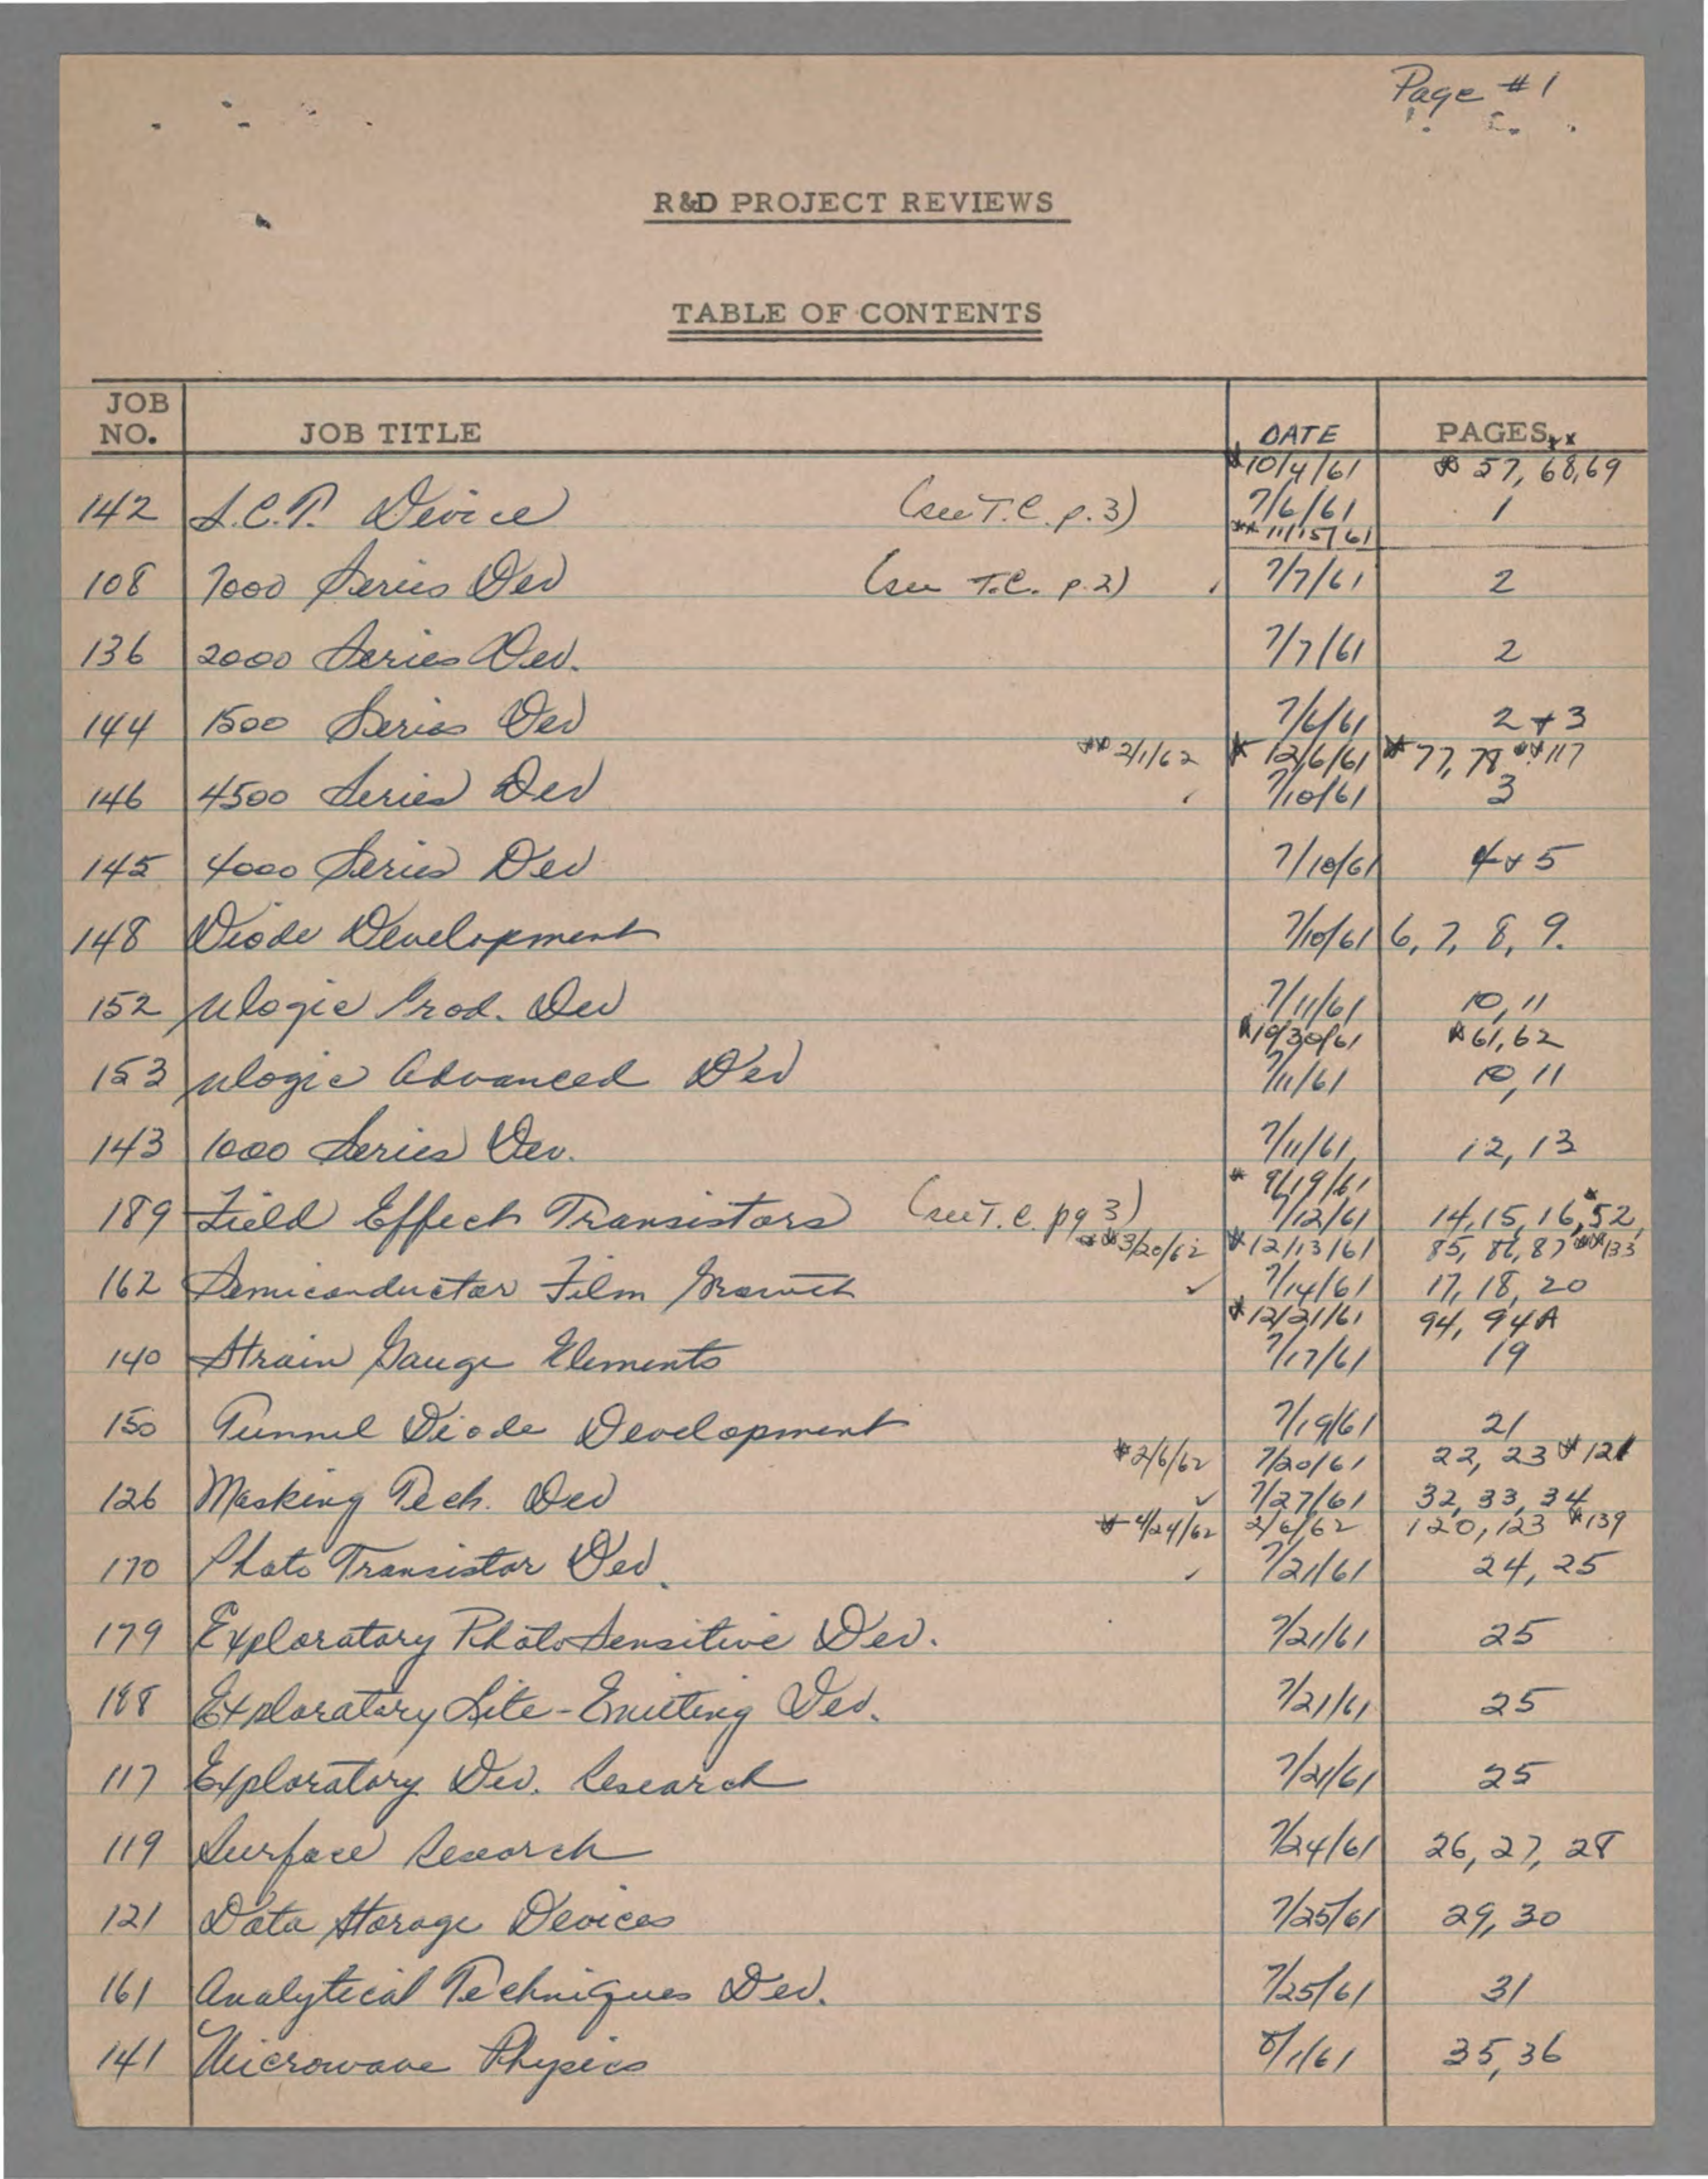 Page #1
R&D PROJECT REVIEWS
TABLE OF CONTENTS
JOB NO. JOB TITLE DATE PAGES **
* 10/4/61 * 57, 68, 69
142 S.C.T. Device (see T.C. p. 3) 7/6/61 1
** 11/15/61
108 7000 Series Dev (see T.C. p. 2) 7/7/61 2
136 2000 Series Dev. 7/7/61 2
144 1500 Series Dev 7/6/61 2 + 3
** 2/1/62 * 12/6/61 * 77, 78 ** 117
146 4500 Series Dev 7/10/61 3
145 4000 Series Dev 7/10/61 4 + 5
148 Diode Development 7/10/61 6, 7, 8, 9.
152 µlogic Prod. Dev 7/11/61 10, 11
* 10/30/61 * 61, 62
153 µlogic Advanced Dev 7/11/61 10, 11
143 1000 Series Dev. 7/11/61 12, 13
* 9/19/61
189 Field Effect Transistors (see T.C. pg 3) 7/12/61 14, 15, 16, * 52,
** 3/20/62 * 12/13/61 85, 86, 87 ** 133
162 Semiconductor Film Growth ✓ 7/14/61 17, 18, 20
* 12/21/61 94, 94A
140 Strain Gauge Elements 7/17/61 19
150 Tunnel Diode Development 7/19/61 21
* 2/6/62 7/20/61 22, 23 * 121
126 Masking Tech. Dev ✓ 7/27/61 32, 33, 34
* 4/24/62 2/6/62 120, 123 * 139
170 Photo Transistor Dev. ✓ 7/21/61 24, 25
179 Exploratory PhotoSensitive Dev. 7/21/61 25
188 Exploratory Lite-Emitting Dev. 7/21/61 25
117 Exploratory Dev. Research 7/21/61 25
119 Surface Research 7/24/61 26, 27, 28
121 Data Storage Devices 7/25/61 29, 30
161 Analytical Techniques Dev. 7/25/61 31
141 Microwave Physics 8/1/61 35, 36